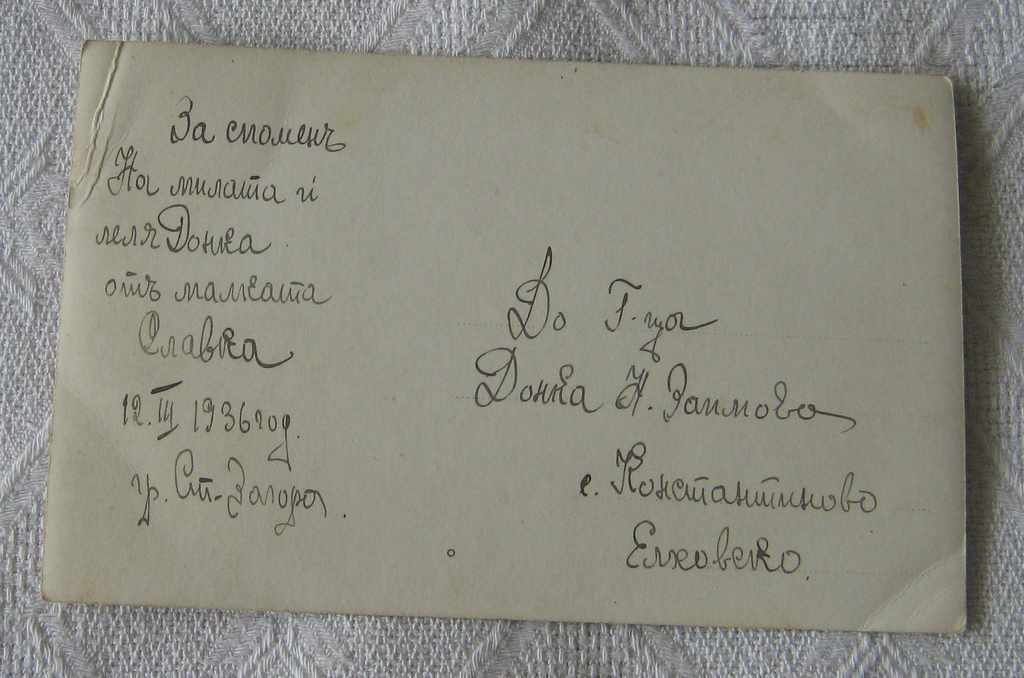 За споменъ
На милата й
леля Донка
отъ малката
Славка
12. III 1936 год.
гр. Ст-Загора.
До Г-ца
Донка Н. Заимова
с. Константиново
Елховско.